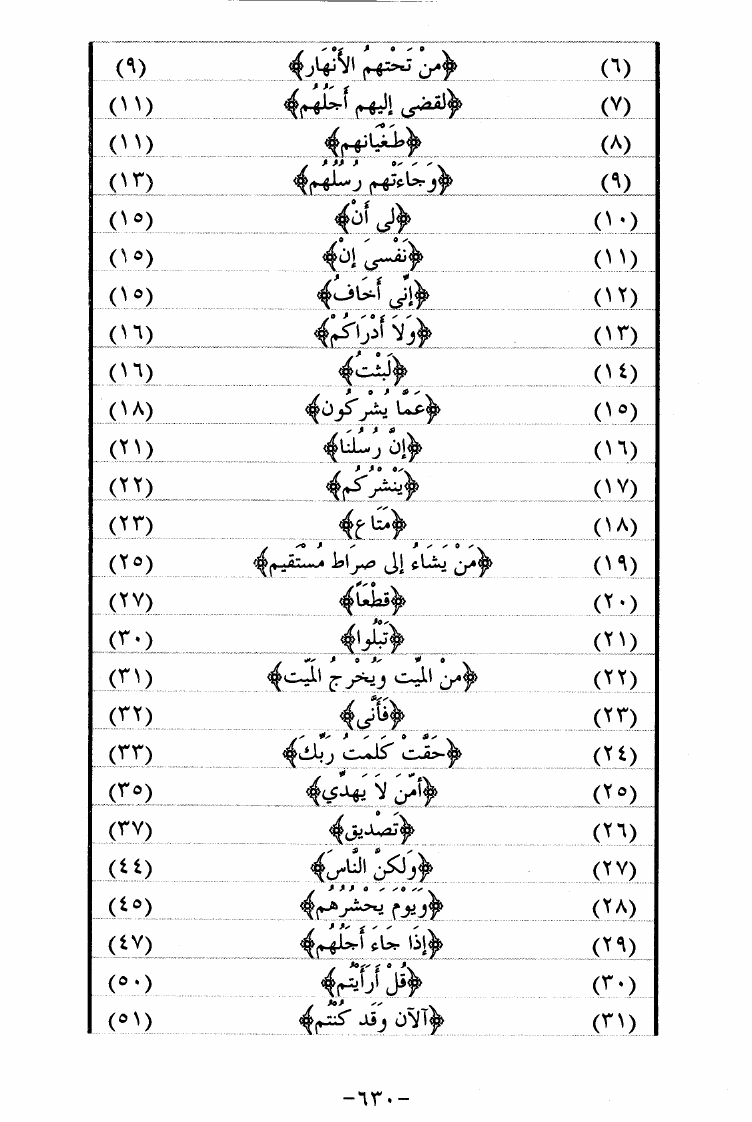 (٦) ﴿منْ تَحْتهمُ الأَنْهَار﴾ (٩)
(٧) ﴿لقضى إليهم أَجَلُهُم﴾ (١١)
(٨) ﴿طُغْيَانهم﴾ (١١)
(٩) ﴿وَجَاءَتْهم رُسُلُهُم﴾ (١٣)
(١٠) ﴿لى أَنْ﴾ (١٥)
(١١) ﴿نَفْسىَ إنْ﴾ (١٥)
(١٢) ﴿إنِّي أَخَافُ﴾ (١٥)
(١٣) ﴿وَلاَ أَدْرَاكُمْ﴾ (١٦)
(١٤) ﴿لَبثْتُ﴾ (١٦)
(١٥) ﴿عَمَّا يُشْركُون﴾ (١٨)
(١٦) ﴿إنَّ رُسُلَنَا﴾ (٢١)
(١٧) ﴿يَنْشُرُكُم﴾ (٢٢)
(١٨) ﴿مَتَاع﴾ (٢٣)
(١٩) ﴿مَنْ يَشَاءُ إلى صرَاط مُسْتَقيم﴾ (٢٥)
(٢٠) ﴿قطْعَاً﴾ (٢٧)
(٢١) ﴿تَبْلُوا﴾ (٣٠)
(٢٢) ﴿منْ الميِّت وَيُخْرجُ الميِّت﴾ (٣١)
(٢٣) ﴿فَأَنَّى﴾ (٣٢)
(٢٤) ﴿حَقَّتْ كَلمَتُ رَبِّكَ﴾ (٣٣)
(٢٥) ﴿أمّنَ لاَ يَهدِّي﴾ (٣٥)
(٢٦) ﴿تَصْديق﴾ (٣٧)
(٢٧) ﴿وَلَكنَّ النَّاسَ﴾ (٤٤)
(٢٨) ﴿وَيَوْمَ يَحْشُرُهُم﴾ (٤٥)
(٢٩) ﴿إذَا جَاءَ أَجَلُهُم﴾ (٤٧)
(٣٠) ﴿قُلْ أَرَأَيْتُم﴾ (٥٠)
(٣١) ﴿آلآن وَقَد كُنْتُم﴾ (٥١)
-٦٣٠-